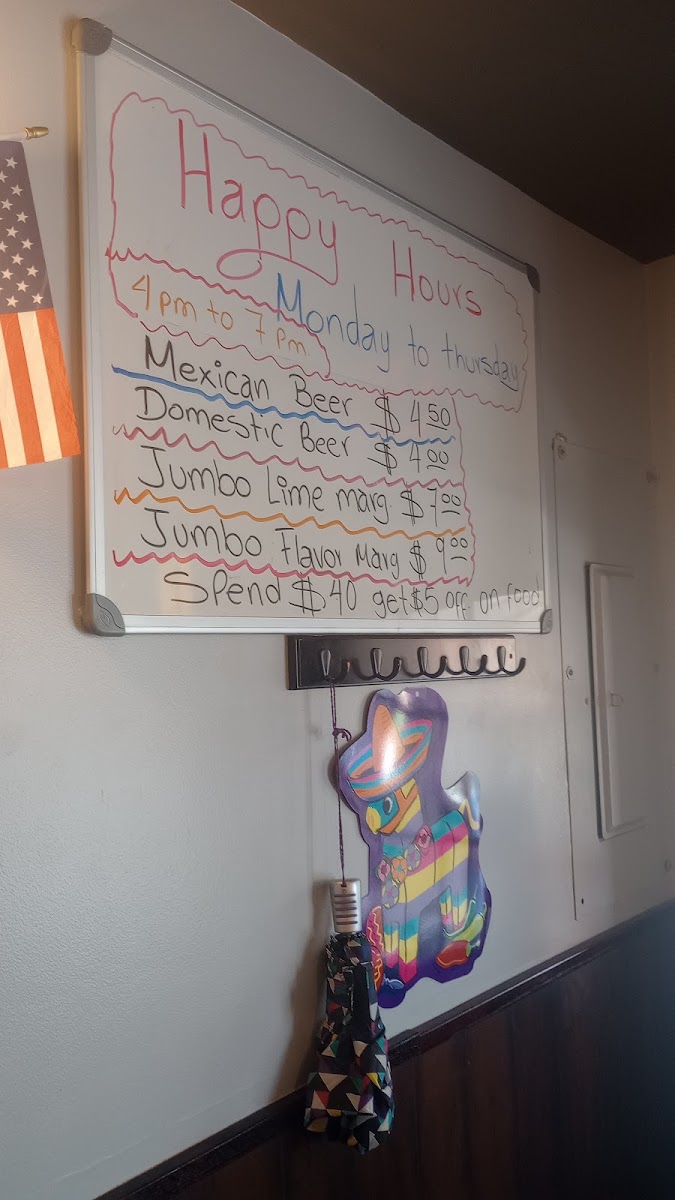 Happy Hours
Monday to thursday
4 pm to 7 pm.
Mexican Beer $ 4 50
Domestic Beer $ 4 00
Jumbo Lime marg. $ 7 00
Jumbo Flavor Marg $ 9 00
Spend $40 get $5 off on food